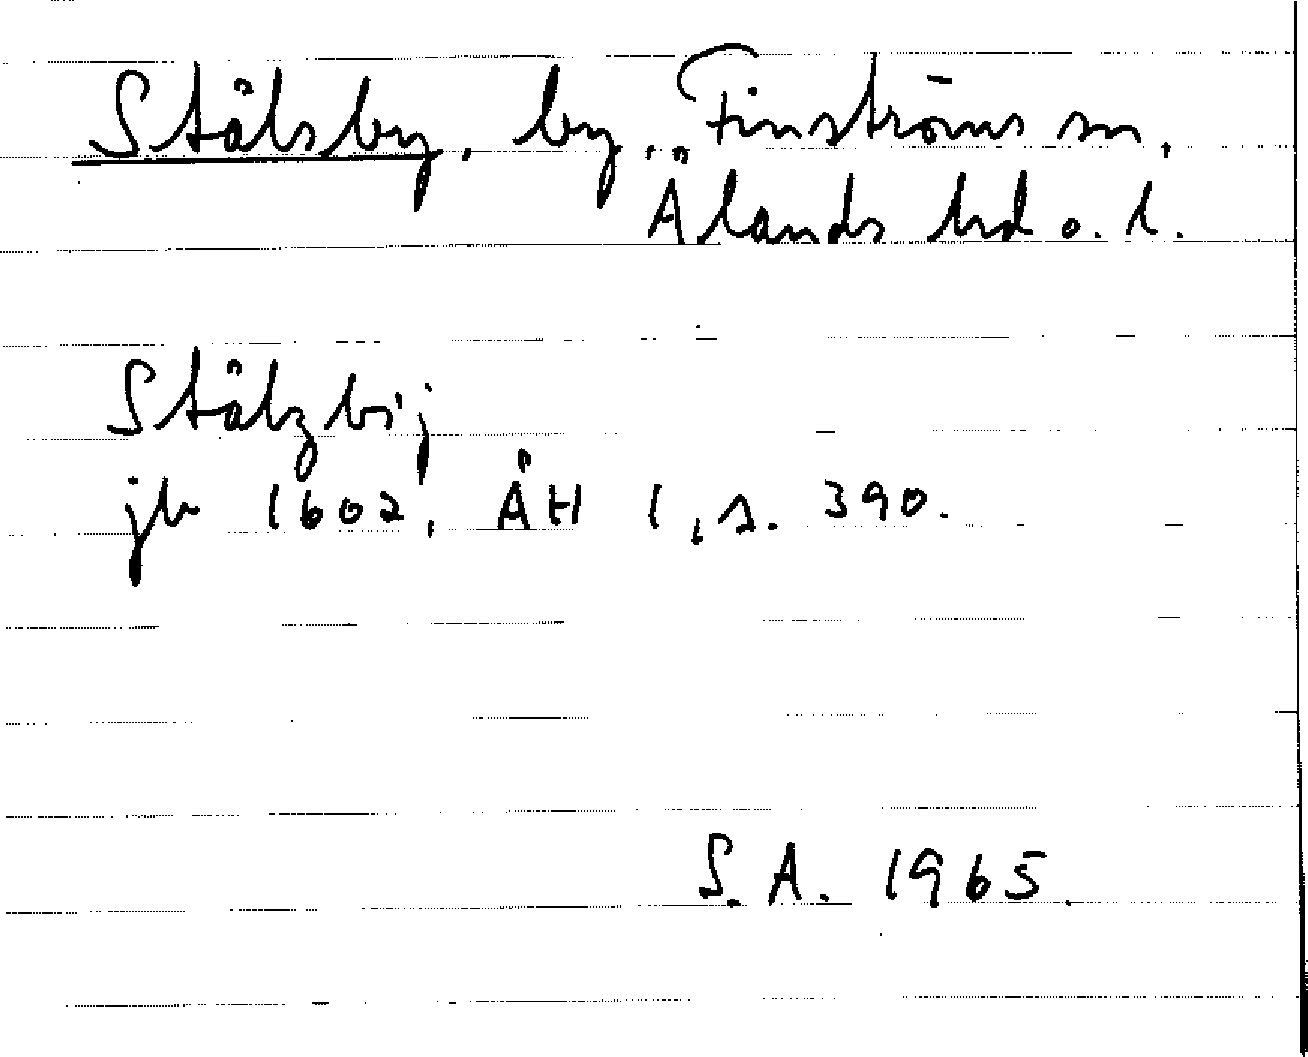 Stålsby, by, Finströms sn,
Ålands hd o. l.
Stålzbij
jb 1602, ÅH 1, s. 390.
S.A. 1965.